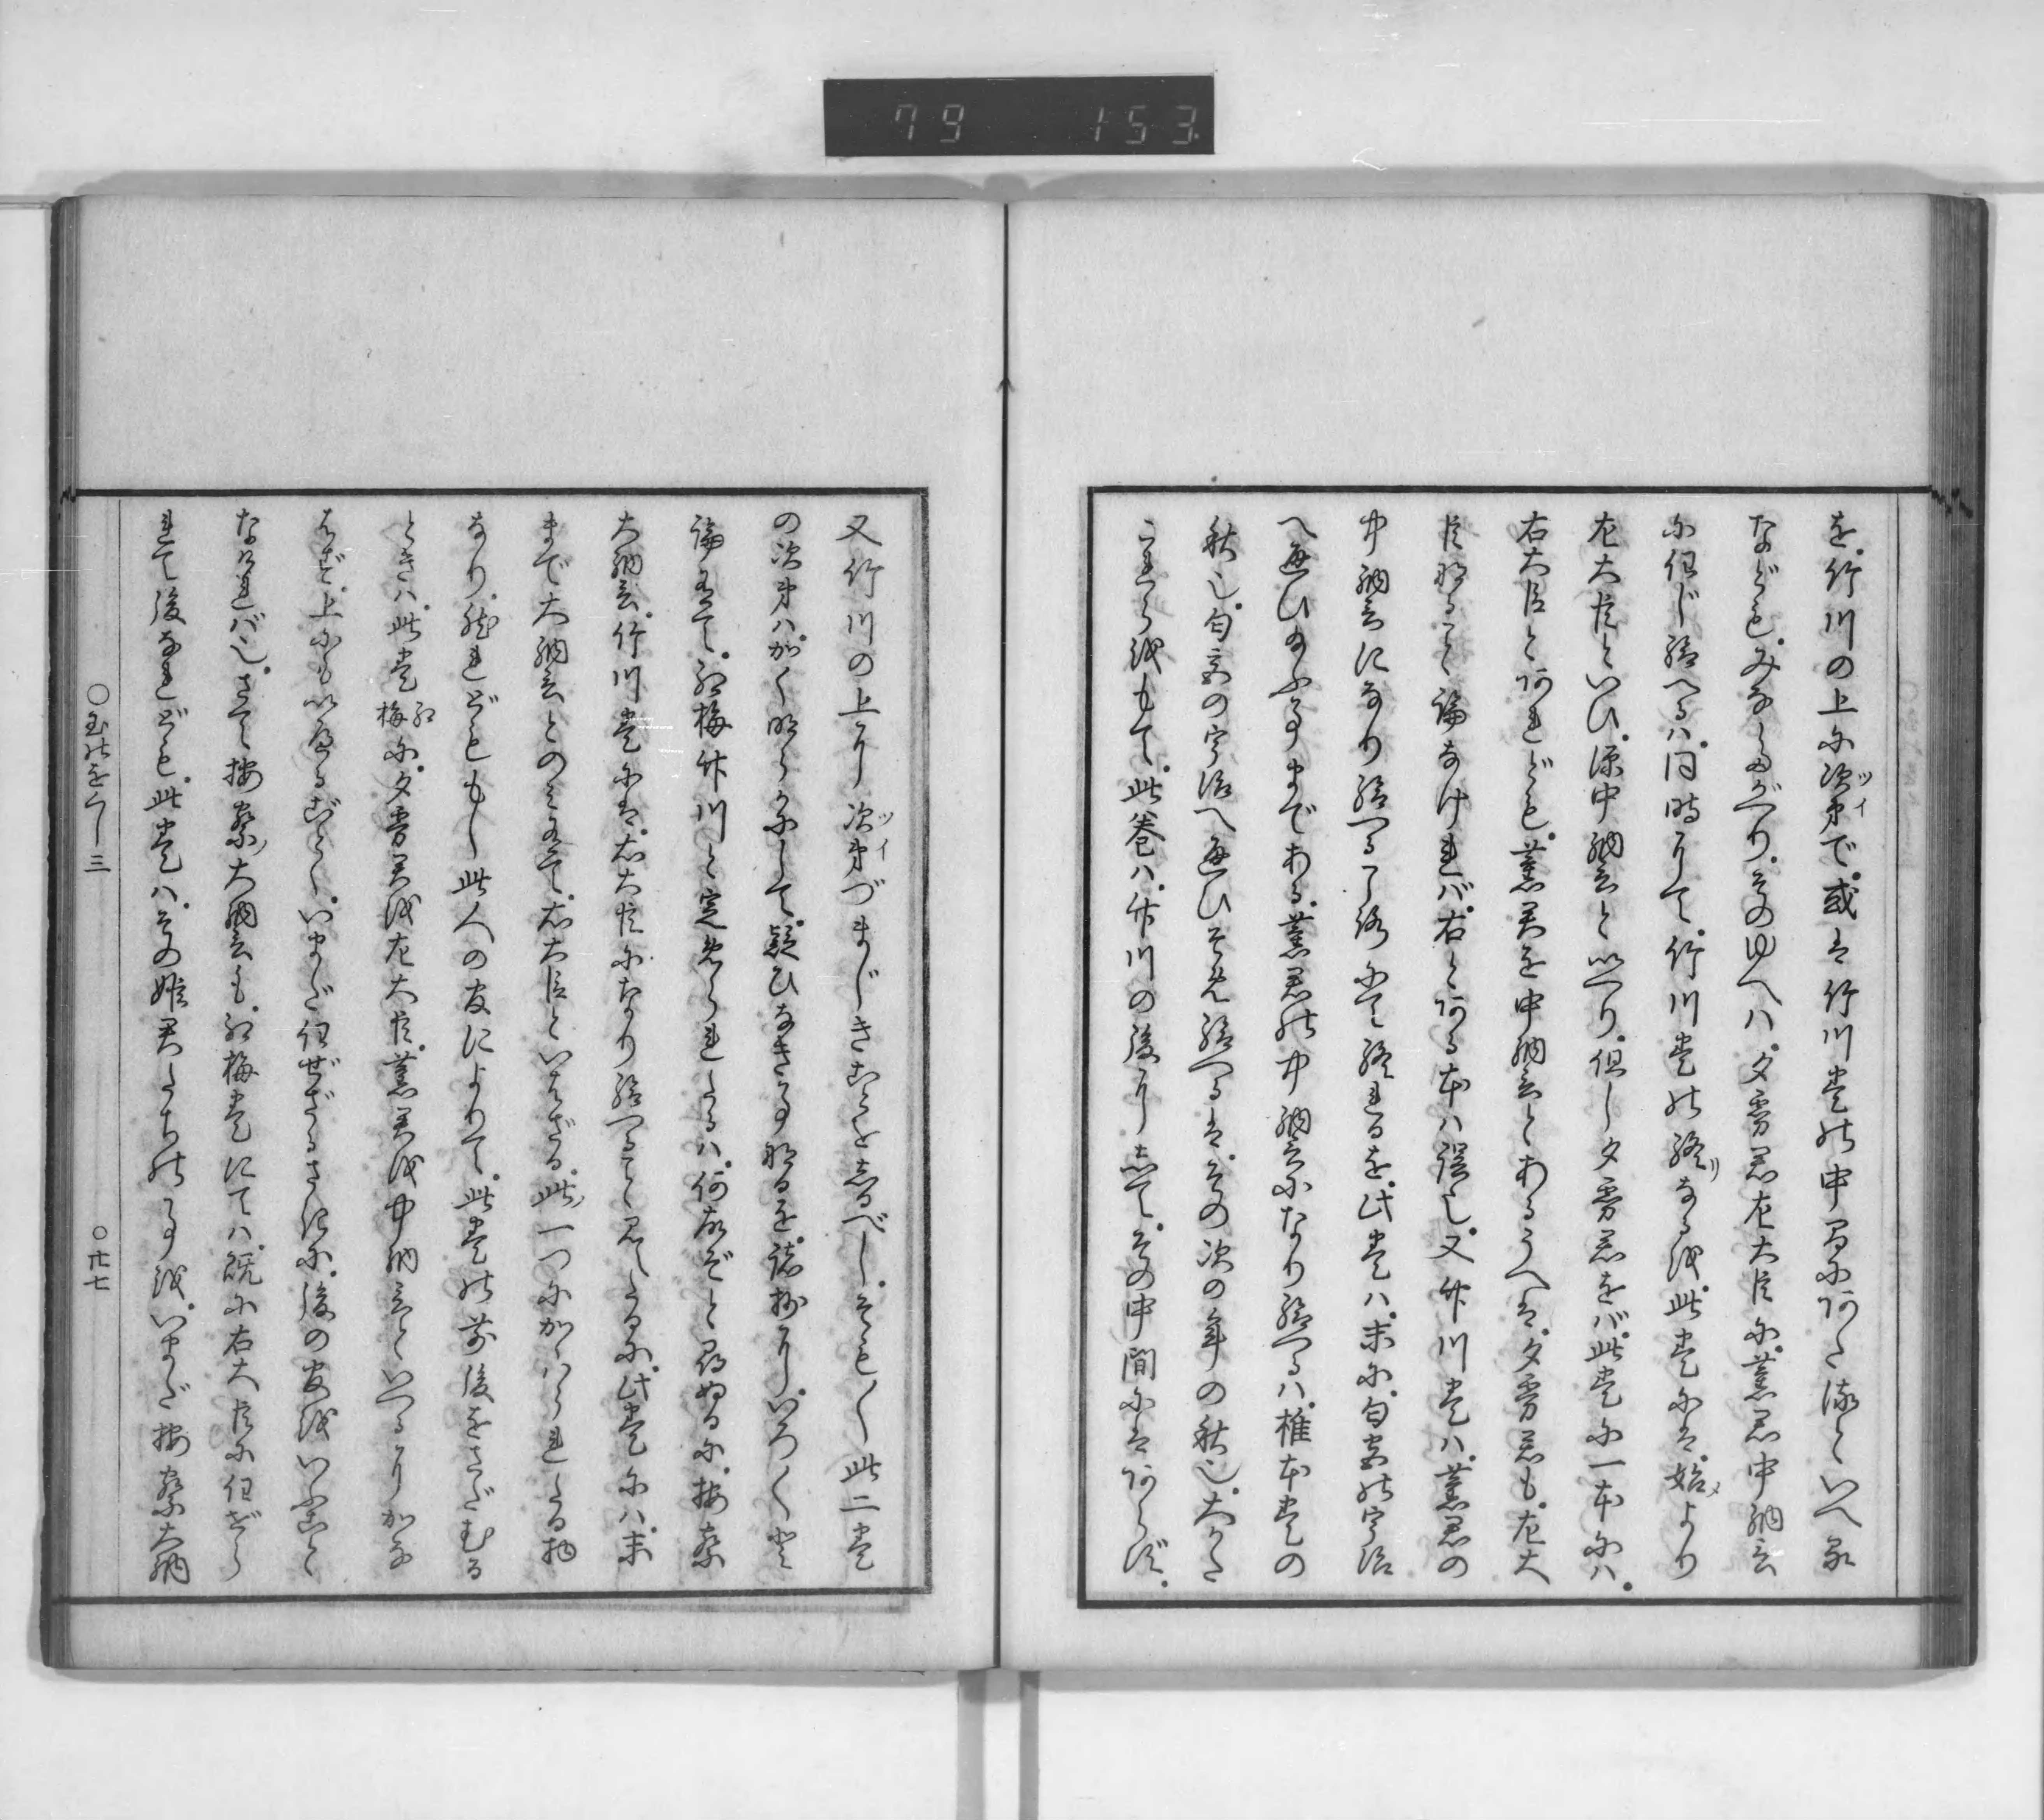 79 153
を、竹川の上に次第で、或は竹川巻の中間にありなどいへれ
なども、みなしるべり、そのゆへは、夕霧君左大臣に、薫君中納言
に任じ給へるは、同時にて、竹川巻の終なるを、此巻には、始より
左大臣といひ、源中納言といへり、但し夕霧君をば、此巻に一本には、
右大臣とあれども、薫君を中納言とあるうへは、夕霧君も、左大
臣なること論なければ、右とある本は誤也、又竹川巻は、薫君の
中納言になり給へるころにて終れるを、此巻は、末に、匂宮の宇治
へ通ひ給ふ事まである、薫君の中納言になり給へるは、椎本巻の
秋也、匂宮の宇治へ通ひそめ給へるは、その次の年の秋也、大かた
これらをもて、此巻は、竹川の後にして、その中間にはあらず、
又竹川の上に次第づまじきことをしるべし、そも〱此二巻
の次第は、かく明らかにして、疑ひなき事なるを、諸抄に、いろ〱と
論有て、紅梅竹川と定められしは、何故ぞと尋ぬるに、按察
大納言、竹川巻には、右大臣になり給へること見えたるに、此巻には、末
まで大納言とのみ有て、右大臣といはざる、此一つにかゝはられたる物
なり、然れどももし此人の官によりて、此巻の前後をさだむる
ときは、此巻紅梅に、夕霧君を左大臣、薫君を中納言といへるにかなは
ず、上にもいへるごとく、いまだ任ぜざるさきに、後の官をいふこと
なければ也、さて按察大納言も、紅梅巻にては、既に右大臣に任ぜら
れて後なれども、此巻は、その姫君たちの事を、いまだ按察大納
○玉のをくし三
○廿七